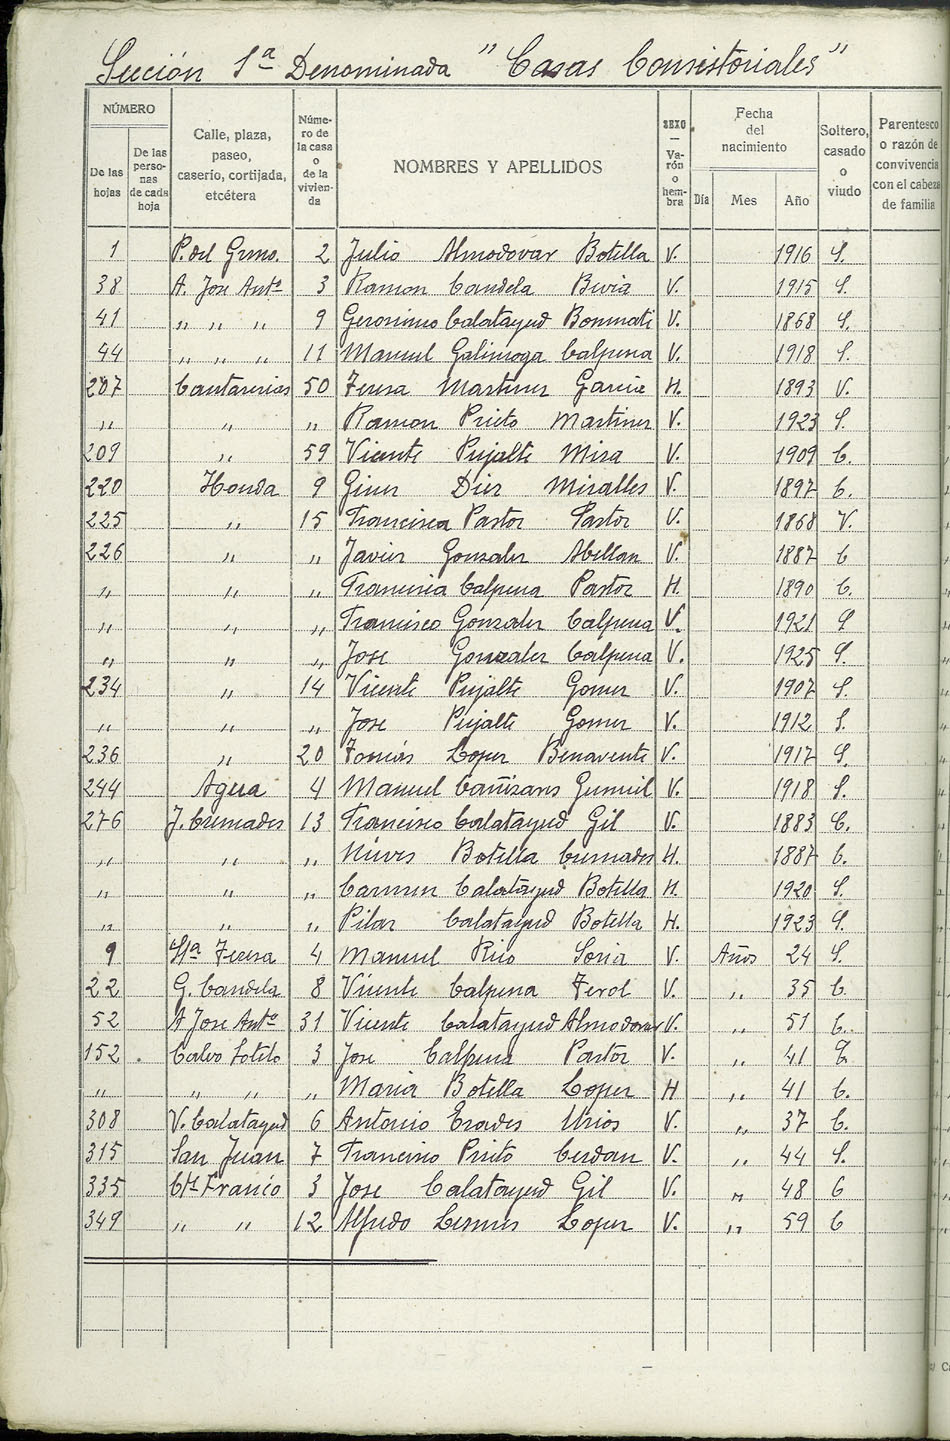 Sección 1ª Denominada "Casas Consistoriales"
NÚMERO
De las hojas
De las perso- nas de cada hoja
Calle, plaza, paseo, caserío, cortijada, etcétera
Núme- ro de la casa o de la vivien- da
NOMBRES Y APELLIDOS
SEXO — Va- rón o hem- bra
Fecha del nacimiento
Día Mes Año
Soltero, casado o viudo
Parentesco o razón de convivencia con el cabeza de familia
1 P. del Grmo. 2 Julio Almodovar Botella V. 1916 S.
38 A. Jose Antº 3 Ramon Candela Bivia V. 1915 S.
41 " " " 9 Geronimo Calatayud Bonmati V. 1868 S.
44 " " " 11 Manuel Galinsoga Calpena V. 1918 S.
207 Cantarerias 50 Teresa Martinez Garcia H. 1893 V.
" " " Ramon Prieto Martinez V. 1923 S.
209 " 59 Vicente Pujalte Mira V. 1909 C.
220 Honda 9 Giner Diez Miralles V. 1897 C.
225 " 15 Francisca Pastor Pastor V. 1868 V.
226 " " Javier Gonzalez Abellan V. 1887 C
" " " Francisca Calpena Pastor H. 1890 C.
" " " Francisco Gonzalez Calpena V. 1921 S
" " " Jose Gonzalez Calpena V. 1925 S.
234 " 14 Vicente Pujalte Gomez V. 1907 S.
" " " Jose Pujalte Gomez V. 1912 S.
236 " 20 Tomás Lopez Benavente V. 1917 S.
244 Agua 4 Manuel Cañizares V. 1918 S.
276 J. Cremades 13 Francisco Calatayud Gil V. 1883 C.
" " " Nieves Botella Cremades H. 1887 C.
" " " Carmen Calatayud Botella H. 1920 S.
" " " Pilar Calatayud Botella H. 1923 S.
9 Sta Teresa 4 Manuel Rico Soria V. Años 24 S.
22 G. Candela 8 Vicente Calpena Terol V. " 35 C.
52 A Jose Antº 31 Vicente Calatayud Almodovar V. " 51 C.
152 Calvo Sotelo 3 Jose Calpena Pastor V. " 41 C.
" " " " Maria Botella Lopez H " 41 C.
308 V. Calatayud 6 Antonio Erades Urios V. " 37 C.
315 San Juan 7 Francisco Prieto Cerdan V. " 44 S.
335 Ctª Franco 3 Jose Calatayud Gil V. " 48 C
349 " " 12 Alfredo Lopez V. " 59 C